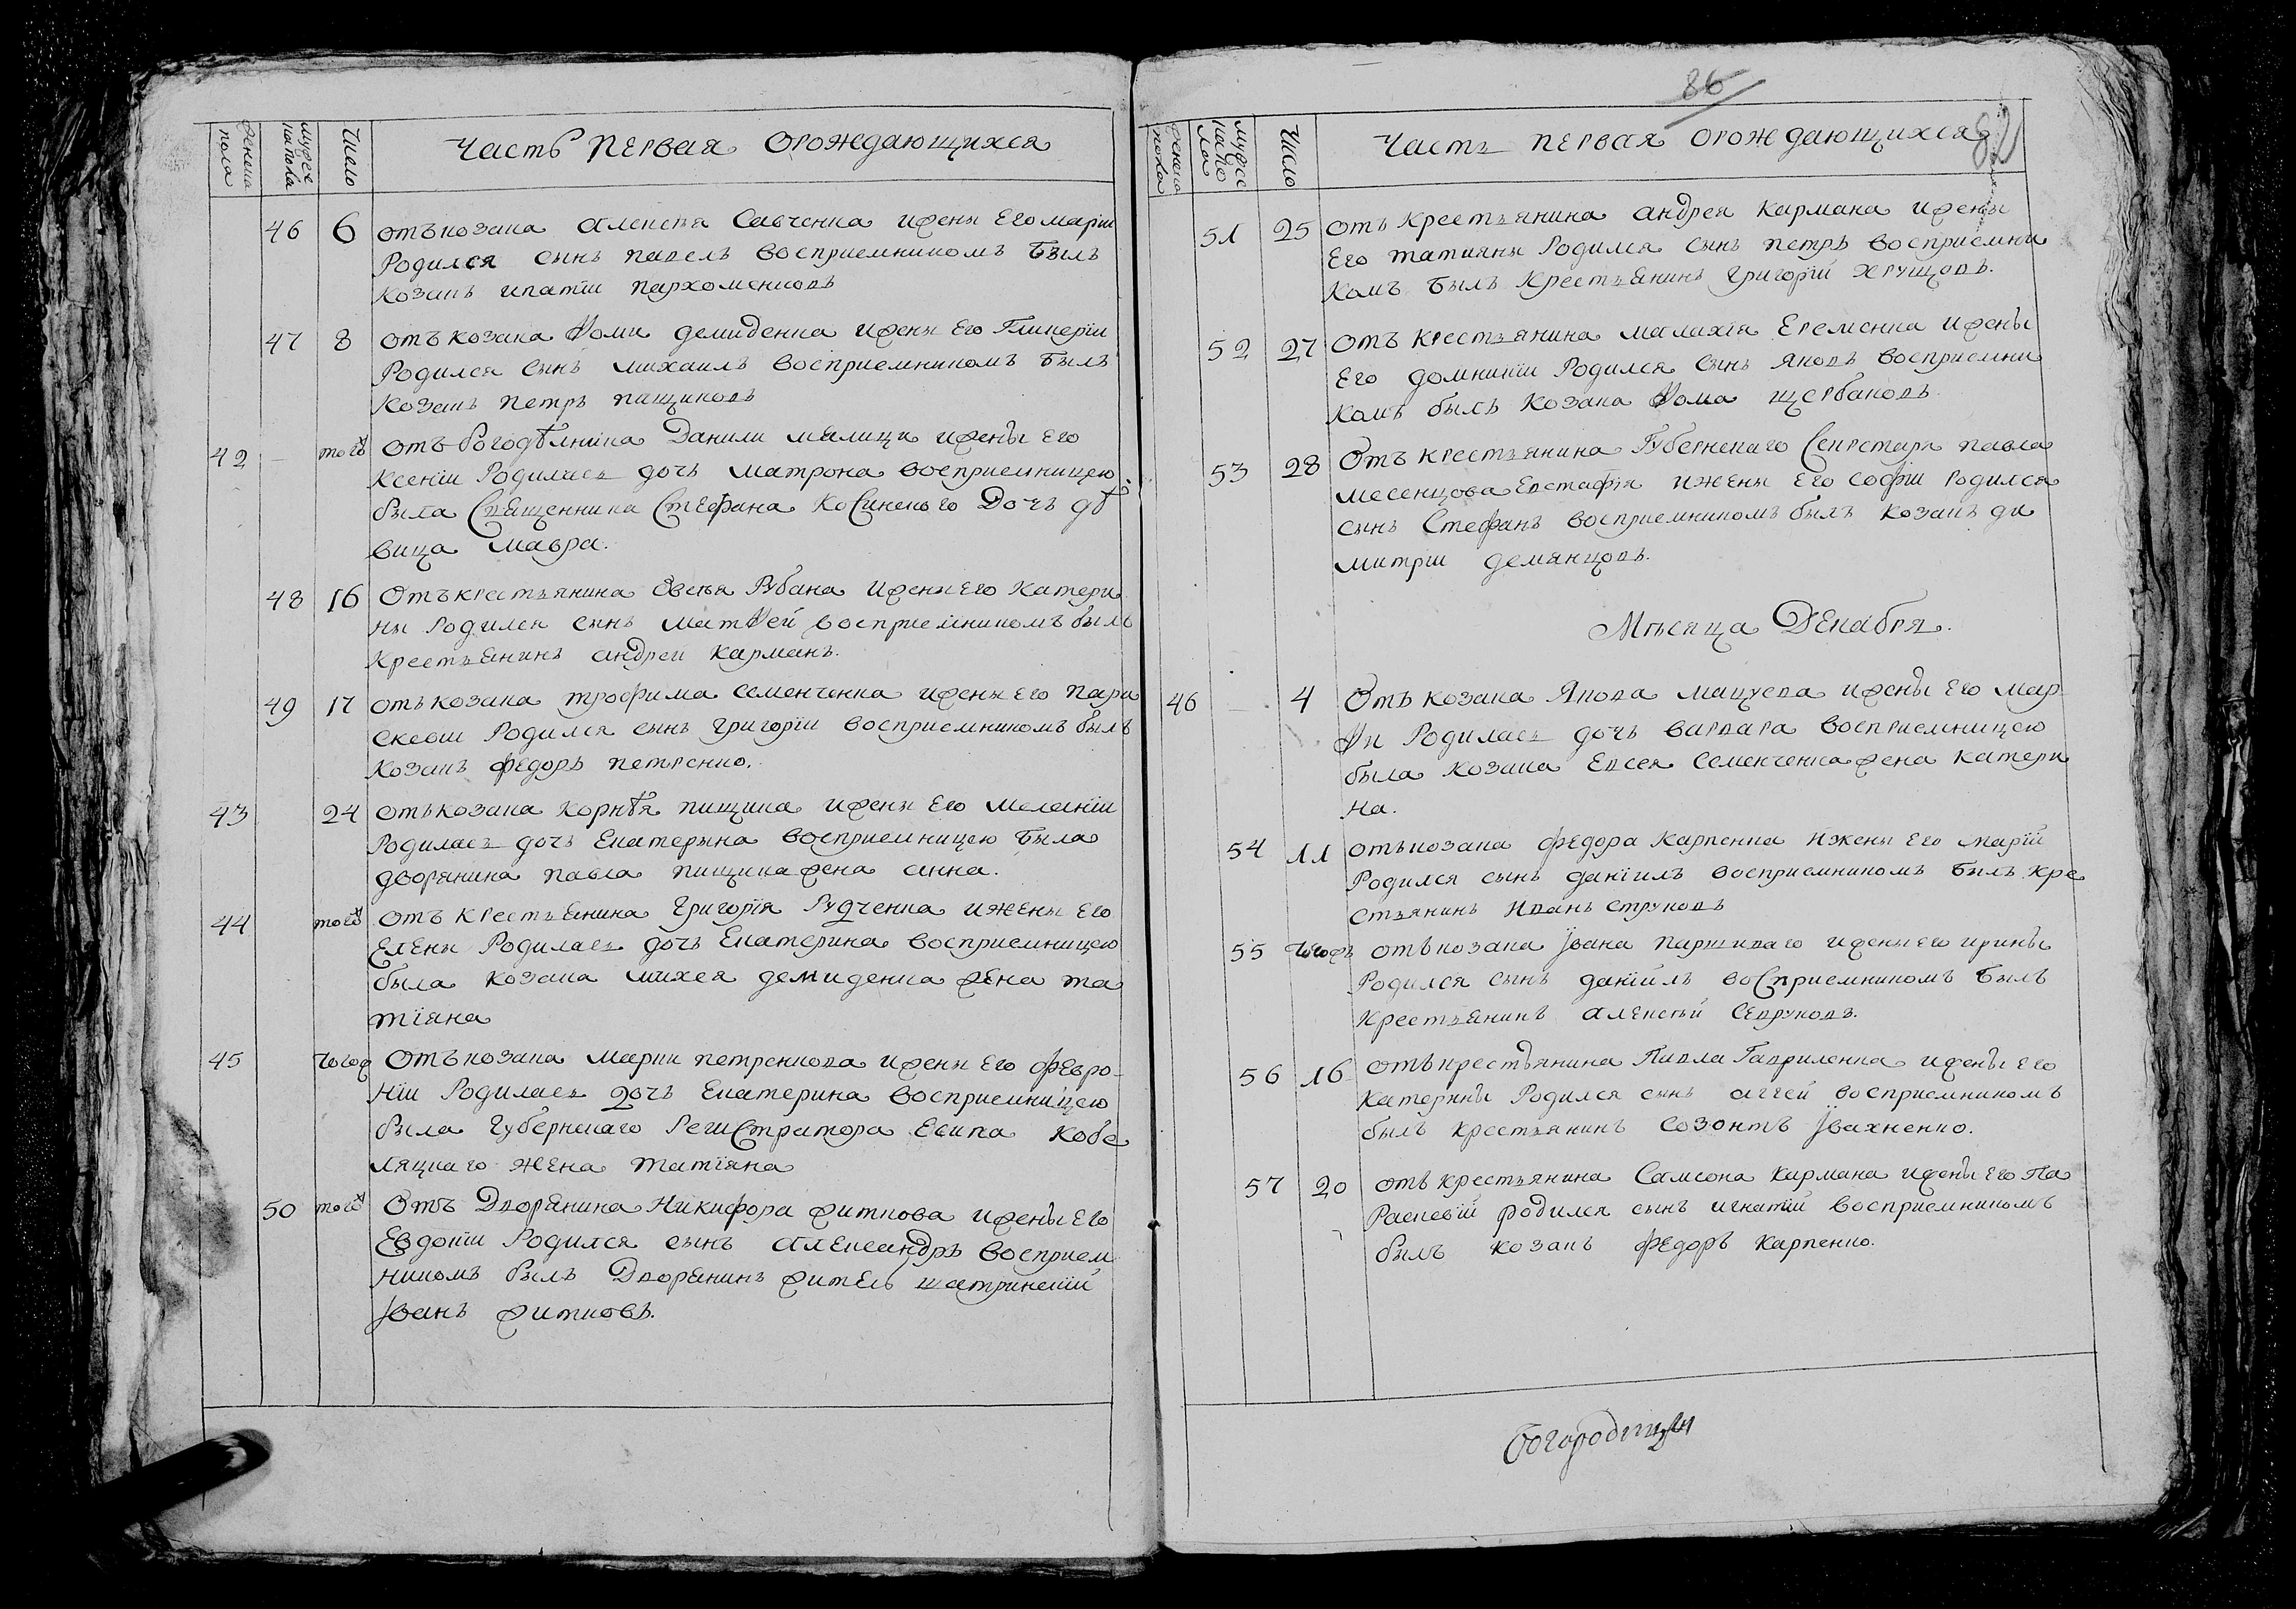 Часть первая орождающихся
женска пола
мужеска пола
Число
46 6 отъ козака Алексѣя Савченка ижены Его Маріи
Родился сынъ павелъ восприемникомъ былъ
козакъ ипатіи пархоменковъ
47 8 отъ козака Ѳоми демиденка ижены Его Гликеріи
Родился сынъ михаилъ восприемникомъ былъ
козакъ петръ пащинковъ
42 тогож отъ Данили ижены Его
Ксеніи Родилась дочь матрона восприемницею
была Священника Стефана Косинского Дочь дѣ
вица Мавра.
48 16 Отъ крестьянина Евсея Рубана ижены его Катери
ны Родился сынъ матѲей восприемникомъ былъ
крестьянинъ андрей карманъ.
49 17 отъ козака трофима семенченка ижены его пара
скевіи Родился сынъ григоріи восприемникомъ былъ
козакъ федоръ петренко.
43 24 отъ козака корнѣя пищика ижены Его мелании
Родилась дочь Екатерына восприемницею была
дворянина павла пищика жена анна.
44 тогож отъ крестьянина григорія Рудченка ижены Его
Елены Родилась дочь Екатерина восприемницею
была козака михея демиденка жена та
тіяна
45 тогож Отъ козака марки петренкова ижены Его февро-
ніи Родилась дочь Екатерина восприемницею
была губернскаго Регистратора Есипа кобе
ляцкаго жена татіяна
50 тогож Отъ Дворянина Никифора житкова ижены Его
Евдокіи Родился сынъ Александръ восприем
никомъ былъ Дворянинъ житель
Иванъ житковъ.
86
82
Часть первая орождающихся
женска пола
мужескаго пола
Число
51 25 отъ крестьянина андрея кармана ижены
Его татияны Родился сынъ петръ восприемни
комъ былъ крестьянинъ григорій хрущовъ.
52 27 отъ крестьянина малахія Еременка ижены
Его домникіи Родился сынъ яковъ восприемни
комъ былъ козака Ѳома щербаковъ.
53 28 Отъ крестьянина Губернскаго Секретаря павла
месенцова Евстафія ижены Его софіи родился
сынъ Стефанъ восприемникомъ былъ козакъ ди
митріи демянцовъ.
Мѣсяца Декабря.
46 4 Отъ козака Якова мацуева ижены Его мар
Ѳы Родилась дочь варвара восприемницею
была козака Евсея семенченка жена катери
на.
54 11 отъ козака федора карпенка ижены Его марій
Родился сынъ даніилъ восприемникомъ былъ кре
стьянинъ Иванъ струковъ
55 тогожъ отъ козака Ивана паршиваго ижены его ирины
Родился сынъ даніилъ восприемникомъ былъ
крестьянинъ алексѣй Севруковъ.
56 16 отъ крестьянина Павла Гавриленка ижены Его
катерины Родился сынъ аггей восприемникомъ
былъ крестьянинъ созонтъ Ивахненко.
57 20 отъ крестьянина Самсона кармана ижены Его Па
раскевій родился сынъ игнатій восприемникомъ
былъ козакъ федоръ карпенко.